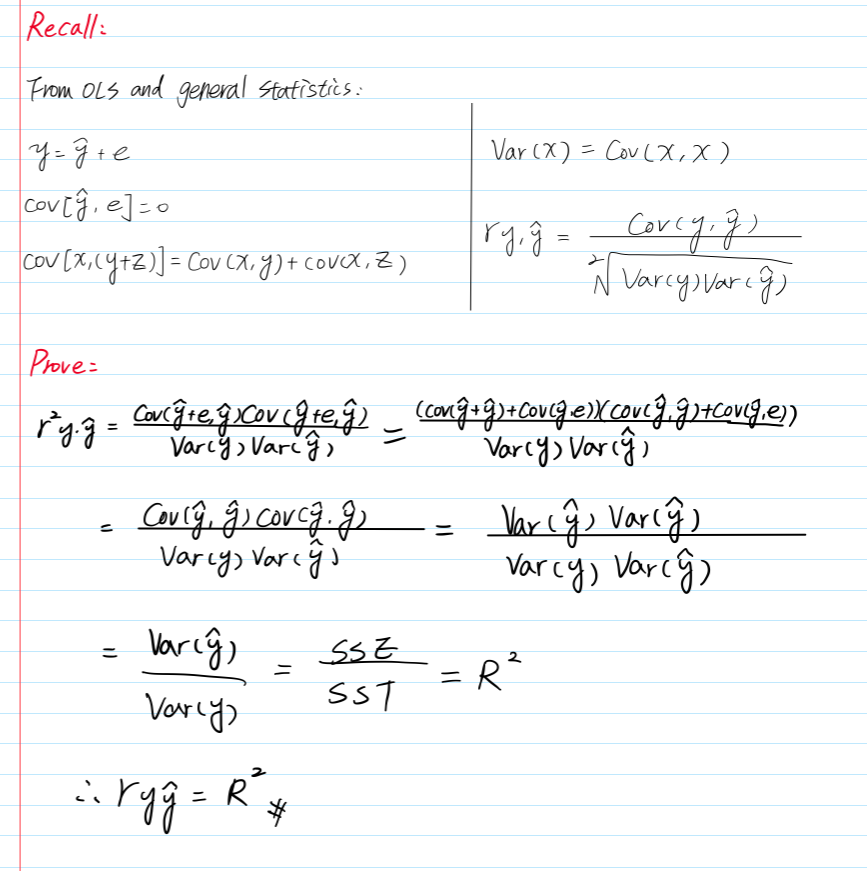 Recall:
From OLS and general statistics:
y = ŷ + e
cov[ŷ, e] = 0
cov[x, (y+z)] = Cov(x, y) + cov(x, z)
Var(x) = Cov(x, x)
r y, ŷ = Cov(y, ŷ) / ²√Var(y)Var(ŷ)
Prove:
r² y.ŷ = Cov(ŷ+e, ŷ)Cov(ŷ+e, ŷ) / Var(y)Var(ŷ) = (cov(ŷ+ŷ)+Cov(ŷ,e))(cov(ŷ,ŷ)+Cov(ŷ,e)) / Var(y)Var(ŷ)
= Cov(ŷ, ŷ)Cov(ŷ, ŷ) / Var(y)Var(ŷ) = Var(ŷ)Var(ŷ) / Var(y)Var(ŷ)
= Var(ŷ) / Var(y) = SSE / SST = R²
∴ r yŷ = R² #